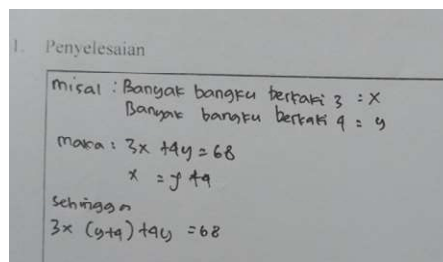 1. Penyelesaian
misal : Banyak bangku berkaki 3 = x
Banyak bangku berkaki 4 = y
maka : 3x + 4y = 68
x = y + 4
sehingga
3x (y+4) + 4y = 68